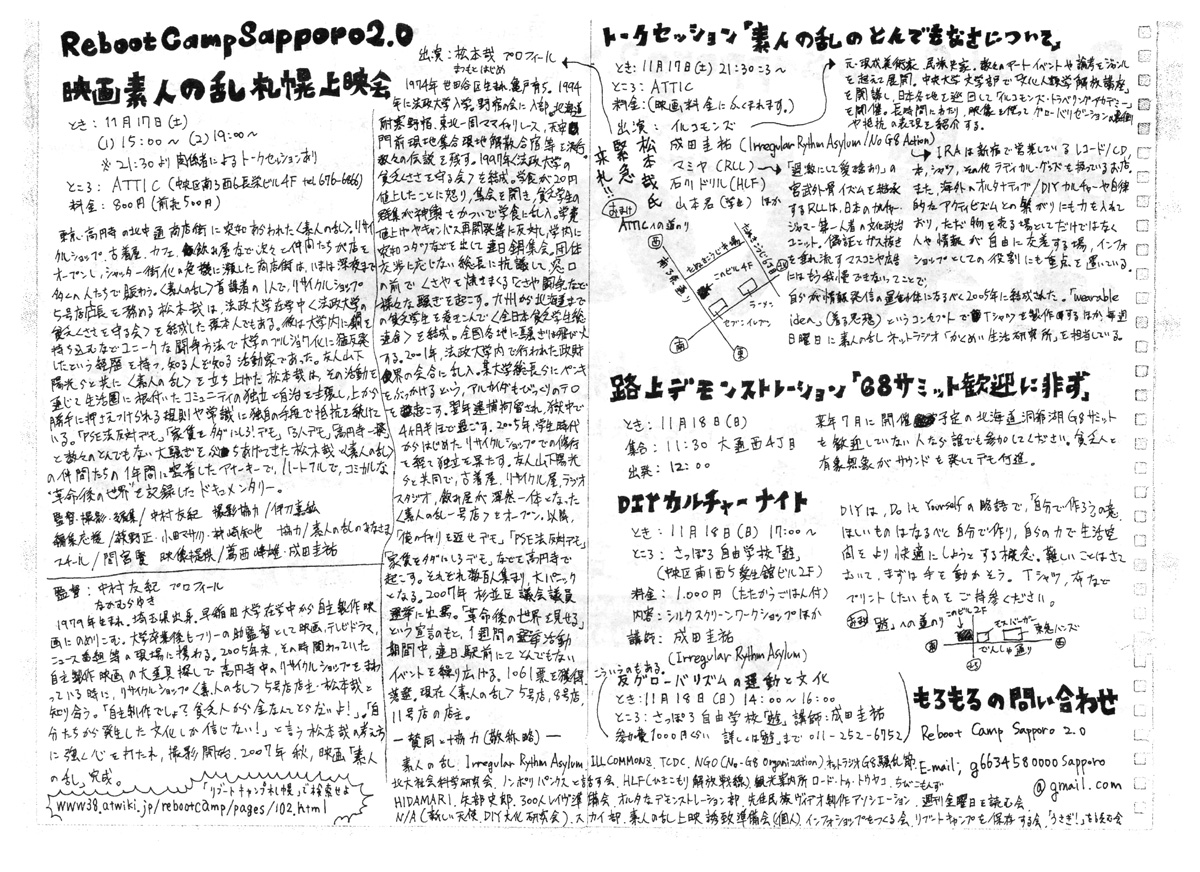 Reboot Camp Sapporo 2.0
映画素人の乱札幌上映会
とき：11月17日(土)
(1) 15:00〜 (2) 19:00〜
※21:30より関係者によるトークセッションあり
ところ：ATTIC (中央区南3西6長栄ビル4F tel 676-6866)
料金：800円 (前売500円)
東京・高円寺の北中通商店街に突如あらわれた〈素人の乱〉。リサイ
クルショップ、古着屋、カフェ、飲み屋など次々と仲間たちが店を
オープンし、シャッター街化の危機に瀕した商店街は、いまは深夜まで
多くの人たちで賑わう。〈素人の乱〉首謀者の1人で、リサイクルショップ
5号店店長を務める松本哉は、法政大学在学中〈法政大学の
貧乏くささを守る会〉を結成した張本人でもある。彼は大学内に鍋を
持ち込むなどユニークな闘争方法で大学のブルジョワ化に猛反発
したという経歴を持つ、知る人ぞ知る活動家であった。友人山下
陽光らと共に〈素人の乱〉を立ち上げた松本哉は、その活動を
通じて生活圏に根付いたコミュニティの独立と自治を主張し、上から
勝手に押さえつけられる規則や常識に独自の手段で抵抗を続けて
いる。「PSE法反対デモ」「家賃をタダにしろ!デモ」「3人デモ」「高円寺一揆」
と数々のとんでもない大騒ぎをぶちあげてきた松本哉以下〈素人の乱〉
の仲間たちの1年間に密着したアナーキーで、ハートフルで、コミカルな
“革命後の世界”を記録したドキュメンタリー。
監督・撮影・編集/中村友紀 撮影協力/伊刀嘉紘
編集応援/綾野正・小田マサノリ・神崎知也 協力/素人の乱のみなさま
スチール/間宮賢 映像提供/葛西峰雄・成田圭祐
監督：中村友紀 プロフィール
なかむらゆき
1979年生まれ、埼玉県出身。早稲田大学在学中から自主製作映
画にのめりこむ。大学卒業後もフリーの助監督として映画、テレビドラマ、
ニュース番組等の現場に携わる。2005年末、その時関わっていた
自主製作映画の大道具探しで高円寺中のリサイクルショップをまわ
っている時に、リサイクルショップ〈素人の乱〉5号店店主・松本哉と
知り合う。「自主制作でしょ?貧乏人から金なんてとらないよ!」。「自
分たちから発生した文化しか信じない!」と言う松本哉の考え方
に強く心を打たれ、撮影開始。2007年秋、映画「素人
の乱」完成。
「リブートキャンプ札幌」で検索せよ
www38.atwiki.jp/rebootcamp/pages/102.html
出演：松本哉 プロフィール
まつもとはじめ
1974年世田谷区生まれ亀戸育ち。1994
年に法政大学入学。野宿の会に入部。北海道
耐寒野宿、東北一周ママチャリレース、天安
門前現地集合現地解散合宿等と決行
数々の伝説を残す。1997年〈法政大学の
貧乏くささを守る会〉を結成。学食が20円
値上したことに怒り、集会を開き、貧乏学生の
群集が神輿をかついで学食に乱入。学費
値上げやキャンパス再開発等に反対し、学内に
突如コタツなどを出して連日鍋集会。団体
交渉に応じない総長に抗議して、窓口
の前でくさやを焼きまくる「くさや闘争」など
様々な騒ぎを起こす。九州から北海道まで
の貧乏学生を寄せ集んで〈全日本貧乏学生総
連合〉を結成。全国各地に騒ぎは飛び火
する。2001年、法政大学内で行われた政財
界の会合に乱入。某大学総長らにペンキ
をぶっかけるという、アルカイダもびっくりのテロ
を起こす。翌年逮捕拘留され、獄中で
4ヶ月半ほど過ごす。2005年、学生時代
からはじめたリサイクルショップでの修行
を経て独立を果たす。友人山下陽光
らと共同で、古着屋、リサイクル屋、ラジオ
スタジオ、飲み屋が渾然一体となった
〈素人の乱一号店〉をオープン。以降、
「俺のチャリを返せデモ」、「PSE法反対デモ」
「家賃をタダにしろデモ」などで高円寺で
起こす。それぞれ数百人集まり、大パニック
となる。2007年杉並区議会議員
選挙に出馬。「革命後の世界を見せる」
という宣言のもと、1週間の選挙活動
期間中、連日駅前にてとんでもない
イベントを繰り広げる。1061票を獲得
落選。現在〈素人の乱〉5号店、8号店、
11号店の店主。
トークセッション「素人の乱のとんでもなさについて」
とき：11月17日(土) 21:30ごろ〜
ところ：ATTIC
料金：(映画料金にふくまれます。)
出演：イルコモンズ
成田圭祐 (Irregular Rythm Asylum/No G8 Action)
マミヤ (RLL)
石川ドリル (HLF)
山本名 (学生) ほか
松本哉氏
緊急
来札!!
元・現代美術家、民族学家。数々のアートイベントや論考をジャンル
を超えて展開。中央大学大学部で「文化人類学解放講座」
を開講し、日本各地を巡回して「イルコモンズ・トラベリング・アカデミー」
を開催。長時間にわたり、映像を使ってグローバリゼーションの裏側
や抵抗の表現を紹介する。
IRAは新宿で営業しているレコード/CD、
本、シャツ、その他ラディカル・グッズを扱っているお店。
また、海外のオルタナティブ/DIYカルチャーや自律
的なアクティビズムとの繋がりにも力を入れて
おり、ただ物を売る場としてだけではなく
人や情報が自由に交差する場、インフォ
ショップとしての役割にも重点を置いている。
「過激にして愛嬌あり」の
宮武外骨イズムを継承
するRLLは、日本のカルチャー
ジャマー第一人者の文化政治
ユニット。偽証とガス抜き
を垂れ流すマスコミや広告
にはもう我慢できないってことで、
自らが情報発信の運動体になるべく2005年に結成された。「wearable
idea」(着る思想)というコンセプトでTシャツを製作するほか毎週
日曜日に素人の乱ネットラジオ「かくめい生活研究所」を担当している。
おまけ
ATTICへの道のり
西
南3条通り
このビル4F
ラーメン
セブンイレブン
南
東
路上デモンストレーション「G8サミット歓迎に非ず」
とき：11月18日(日)
集合：11:30 大通西4丁目
出発：12:00
某年7月に開催予定の北海道洞爺湖G8サミット
を歓迎していない人なら誰でも参加してください。貧乏人と
有象無象がサウンドを発してデモ行進。
DIYカルチャーナイト
とき：11月18日(日) 17:00〜
ところ：さっぽろ自由学校「遊」
(中央区南1西5愛生舘ビル2F)
料金：1,000円 (たたかうごはん付)
内容：シルクスクリーンワークショップほか
講師：成田圭祐
(Irregular Rythm Asylum)
DIYは、Do It Yourselfの略語で、「自分で作ろう」の意。
ほしいものはなるべく自分で作り、自らの力で生活空
間をより快適にしようとする概念。難しいことはさて
おいて、まずは手を動かそう。Tシャツ、布など
プリントしたいものをご持参ください。
おまけ 「遊」への道のり
このビル2F
モスバーガー
東急ハンズ
でんしゃ通り
こういうのもある。
反グローバリズムの運動と文化
とき：11月18日(日) 14:00〜16:00
ところ：さっぽろ自由学校「遊」 講師：成田圭祐
参加費1000円くらい 詳しくは「遊」まで 011-252-6752
もろもろの問い合わせ
Reboot Camp Sapporo 2.0
E-mail: g66345800000sapporo
@gmail.com
— 賛同と協力 (敬称略) —
素人の乱、Irregular Rythm Asylum、ILLCOMMONZ、TCDC、NGO (No-G8 Organization) ネットラジオG8騒乱節、
北大社会科学研究会、ノンポリパンクスと話す会、HLF (ひきこもり解放戦線)、観光案内所ロード・トゥ・トウヤコ、なびこもんず
HIDAMARI、矢部史郎、300人レイヴ準備会、オルタなデモンストレーション部、先住民族ヴィデオ製作アソシエーション、週刊金曜日を読む会
N/A (新しい天使、DIY文化研究会)、スカイ部、素人の乱上映誘致準備会(個人)、インフォショップをつくる会、リブートキャンプを保存する会、「うさぎ!」を読む会